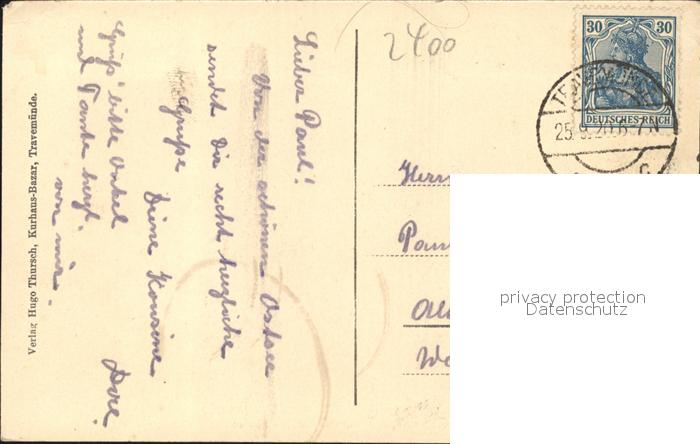 Lieber Paul!
Von der schönen Ostsee
sendet Dir recht herzliche
Grüße
Deine Kousine
Dore.
Grüß' bitte Onkel
und Tante herzl.
von mir.
Verlag Hugo Thursch, Kurhaus-Bazar, Travemünde.
2400
30 30
DEUTSCHES REICH
25.9.20.6-7N
c
Herrn
Pau
privacy protection
Datenschutz